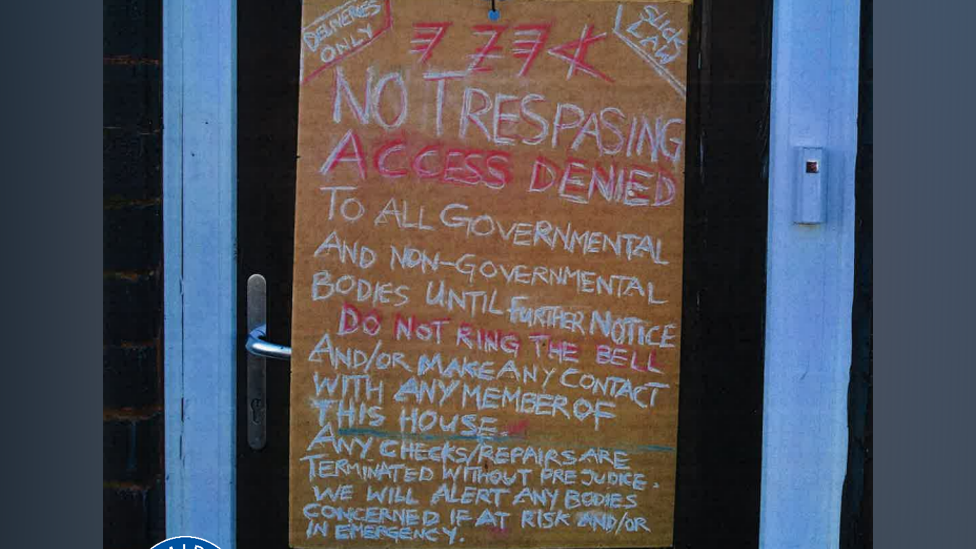 DELIVERIES
ONLY
777
SLICK
LAD
NO TRESPASING
ACCESS DENIED
TO ALL GOVERNMENTAL
AND NON-GOVERNMENTAL
BODIES UNTIL FURTHER NOTICE
DO NOT RING THE BELL
AND/OR MAKE ANY CONTACT
WITH ANY MEMBER OF
THIS HOUSE.
ANY CHECKS/REPAIRS ARE
TERMINATED WITHOUT PREJUDICE.
WE WILL ALERT ANY BODIES
CONCERNED IF AT RISK AND/OR
IN EMERGENCY.